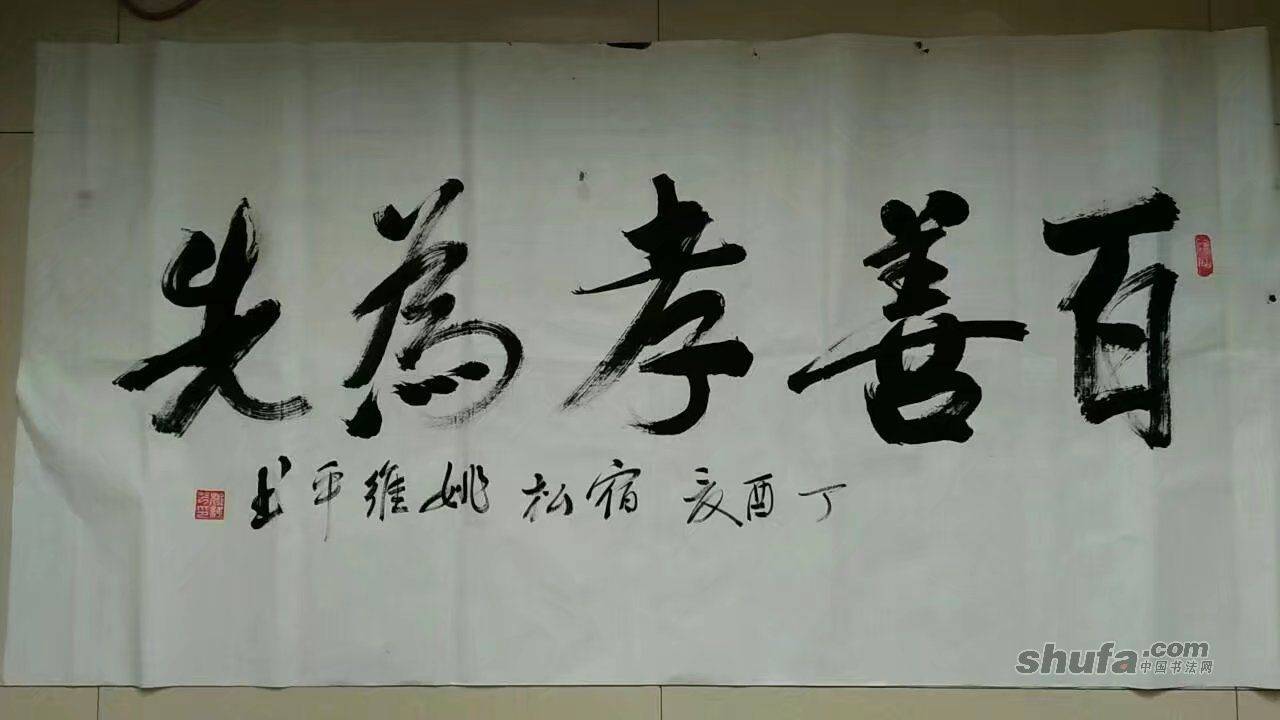 百善孝為先
丁酉夏宿松姚維平书
shufa.com
中国书法网